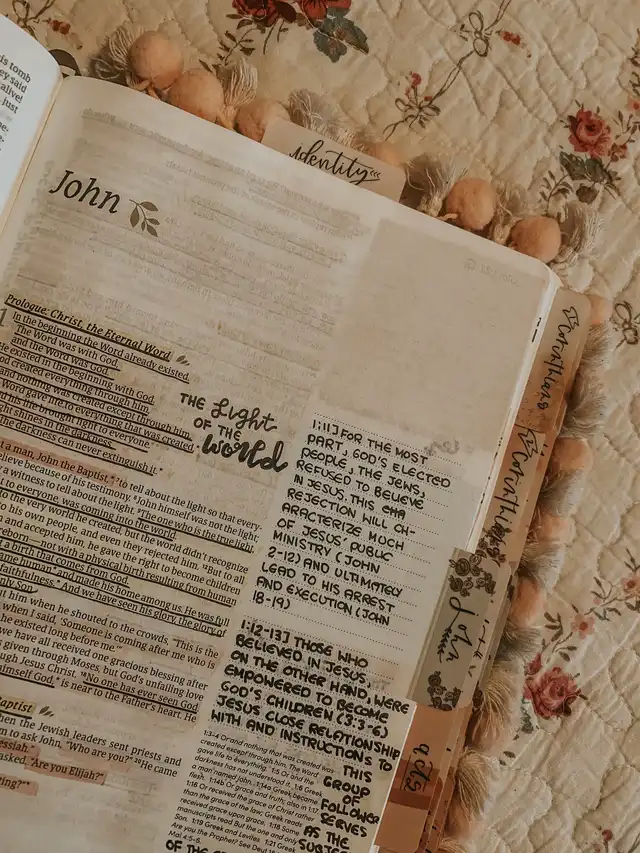 is tomb
ey said
alive!
just
Identity
John
Prologue: Christ, the Eternal Word
1 In the beginning the Word already existed.
The Word was with God,
and the Word was God.
He existed in the beginning with God.
created everything through him,
and nothing was created except through him.
Word gave life to everything that was created,
his life brought light to everyone.
light shines in the darkness,
the darkness can never extinguish it.
THE Light
OF THE
World
a man, John the Baptist, to tell about the light so that every-
believe because of his testimony. John himself was not the light;
a witness to tell about the light. The one who is the true light,
to everyone, was coming into the world.
to the very world he created, but the world didn't recognize
to his own people, and even they rejected him. But to all
and accepted him, he gave the right to become children
reborn—not with a physical birth resulting from human
a birth that comes from God.
ame human and made his home among us. He was full
faithfulness. And we have seen his glory, the glory of
only Son.
t him when he shouted to the crowds, "This is the
when I said, 'Someone is coming after me who is
he existed long before me.'"
we have all received one gracious blessing after
given through Moses, but God's unfailing love
ugh Jesus Christ. 18No one has ever seen God.
imself God, is near to the Father's heart. He
aptist
hen the Jewish leaders sent priests and
m to ask John, "Who are you?" 20He came
essiah."
asked. "Are you Elijah?"
ting?"
1:11] FOR THE MOST
PART, GOD'S ELECTED
PEOPLE, THE JEWS,
REFUSED TO BELIEVE
IN JESUS. THIS CHA
REJECTION WILL CH-
ARACTERIZE MUCH
OF JESUS' PUBLIC
MINISTRY (JOHN
2-12) AND ULTIMATELY
LEAD TO HIS ARREST
AND EXECUTION (JOHN
18-19)
1:12-13] THOSE WHO
BELIEVED IN JESUS,
ON THE OTHER HAND, WERE
EMPOWERED TO BECOME
GOD'S CHILDREN (3:3-6)
JESUS CLOSE RELATIONSHIP
WITH AND INSTRUCTIONS TO
THIS
GROUP
OF
FOLLOWER
SERVES
AS THE
SUBJEC
OF THE
1:3-4 Or and nothing that was created was
created except through him. The Word
gave life to everything. 1:5 Or and the
darkness has not understood it. 1:6 Greek
a man named John. 1:14a Greek became
flesh. 1:14b Or grace and truth; also in 1:17
1:16 Or received the grace of Christ rather
than the grace of the law; Greek reads
received grace upon grace. 1:18 Some
manuscripts read But the one and only
Son. 1:19 Greek and Levites. 1:21 Greek
Are you the Prophet? See Deut
Mal 4:5-6.
Corinthians
Corinthians
John
acts